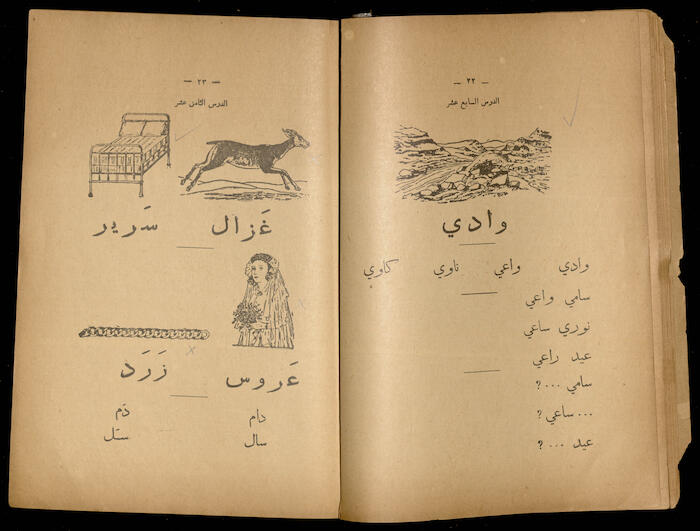 — ٢٢ —
الدرس السابع عشر
وادي
وادي واعي ناوي كاوي
سامي واعي
نوري ساعي
عيد راعي
سامي ...؟
... ساعي؟
عيد ...؟
— ٢٣ —
الدرس الثامن عشر
غَزال سَرير
عَروس زَرَد
دام دَم
سال سَل